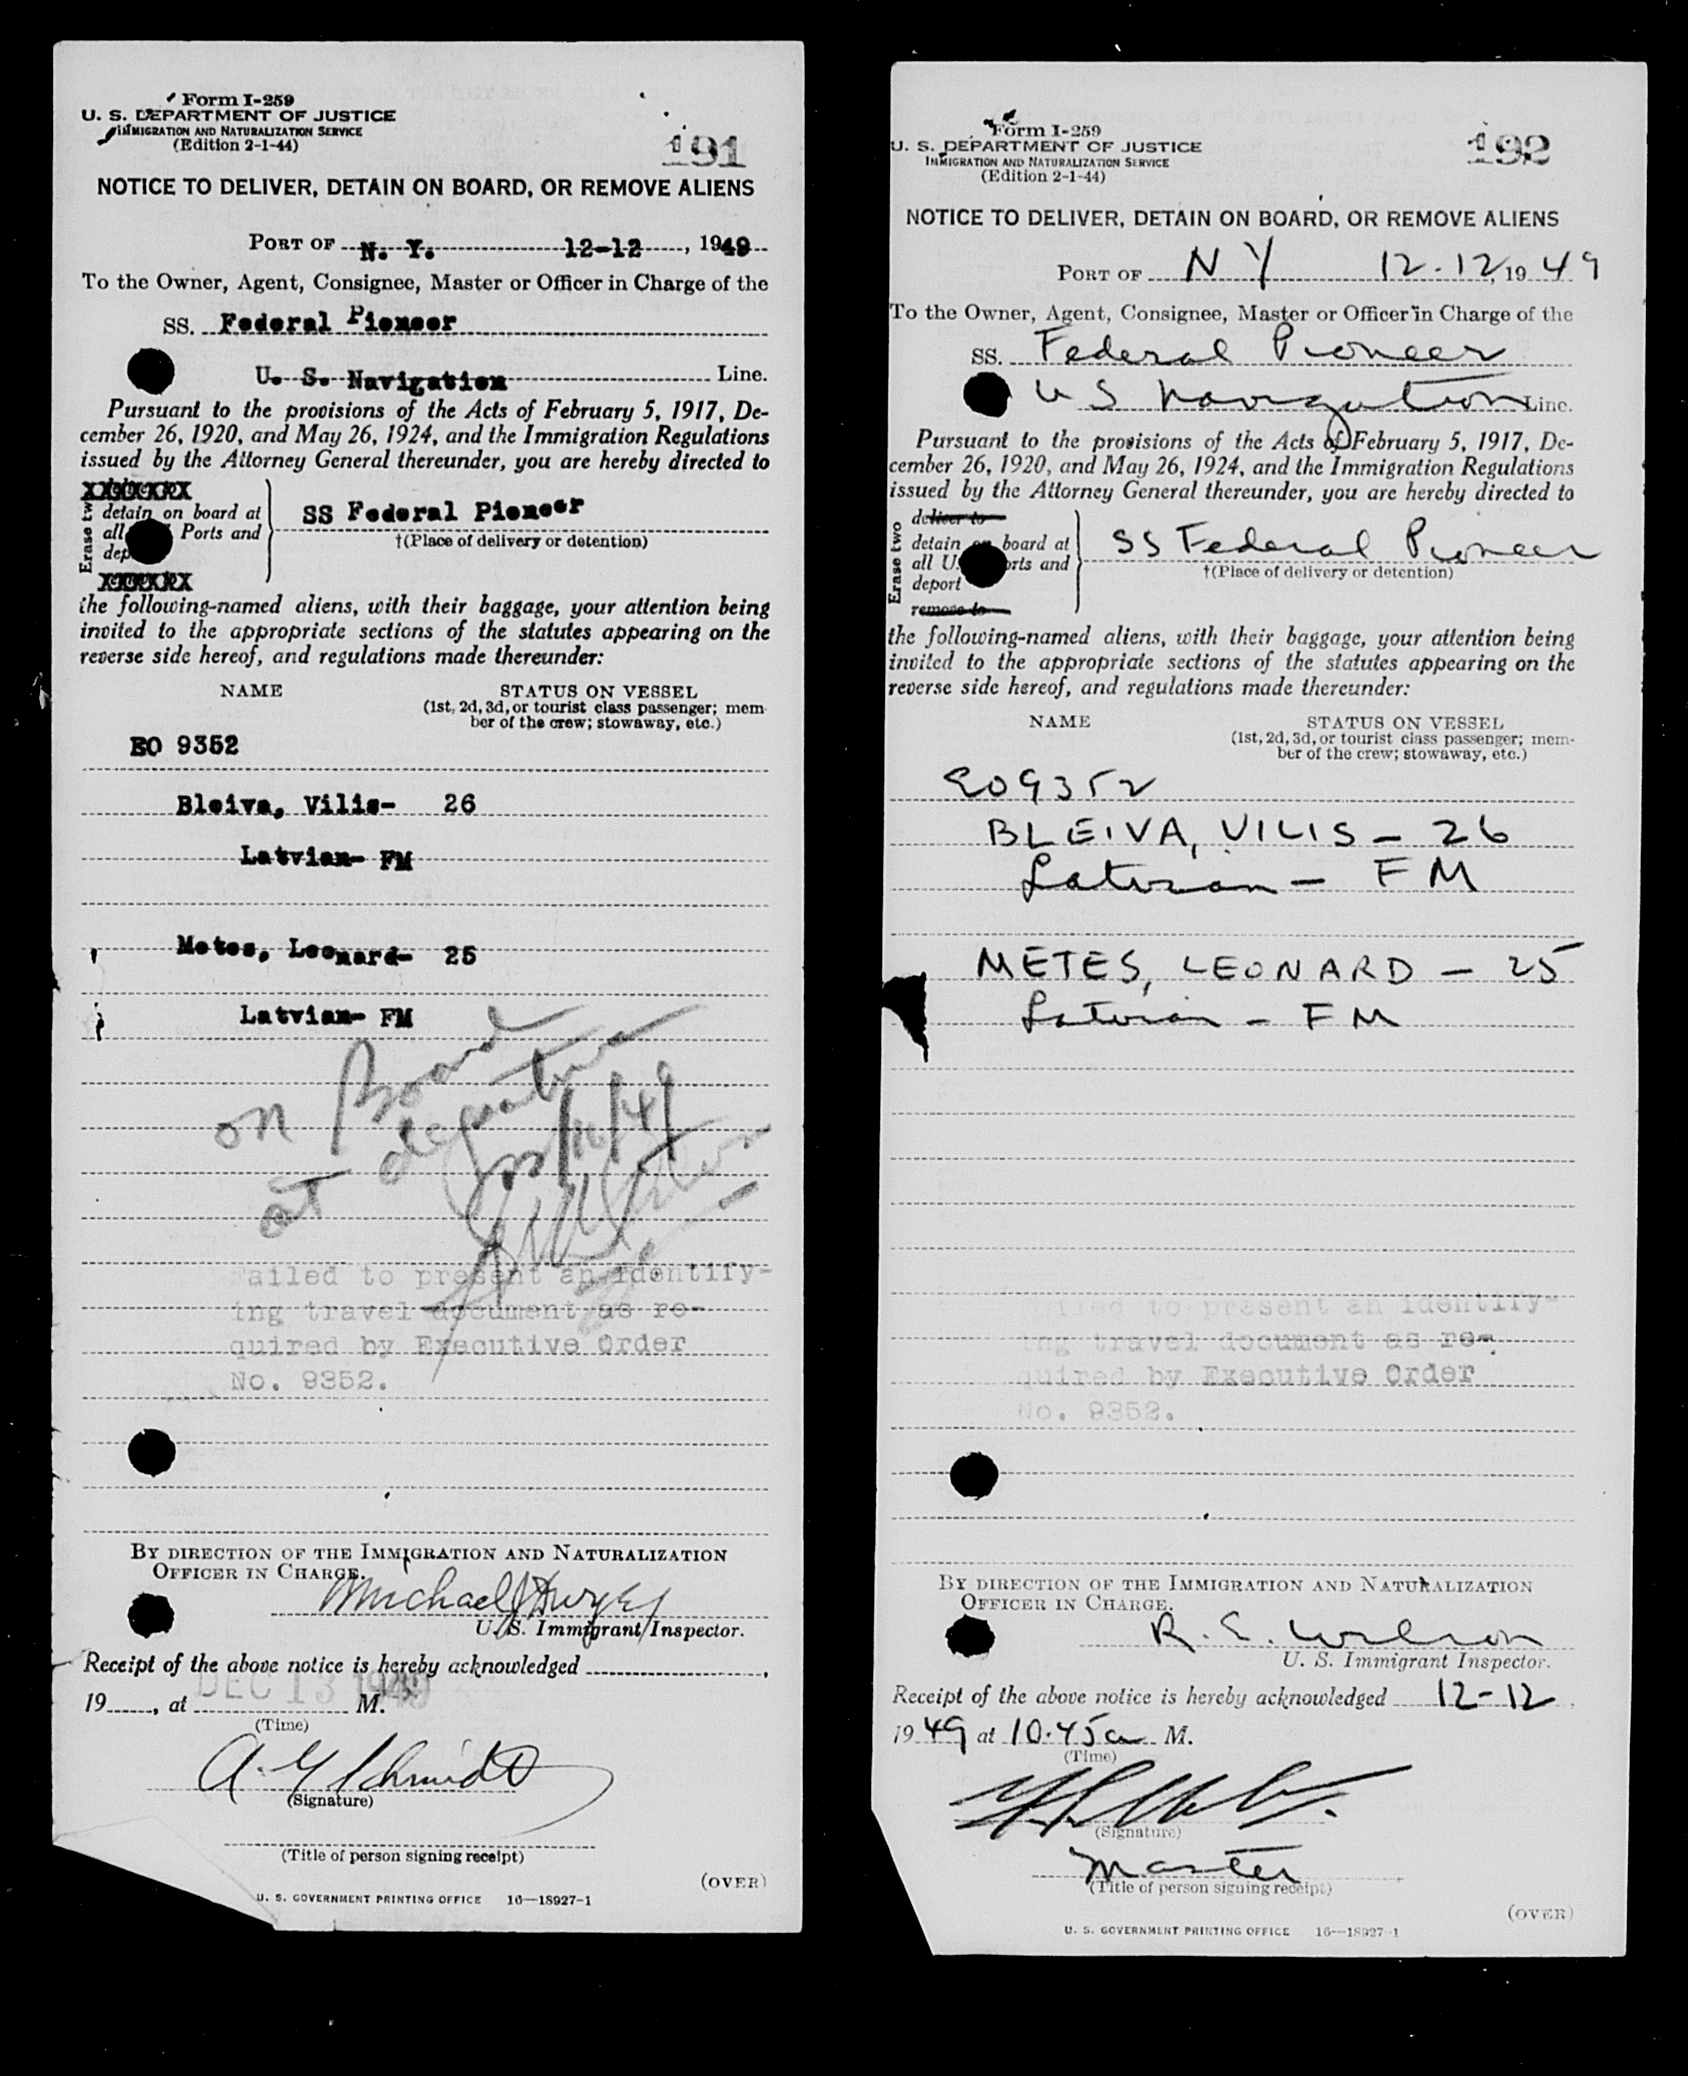 Form I-259
U. S. DEPARTMENT OF JUSTICE
IMMIGRATION AND NATURALIZATION SERVICE
(Edition 2-1-44)
191
NOTICE TO DELIVER, DETAIN ON BOARD, OR REMOVE ALIENS
PORT OF N. Y. 12-12, 1949
To the Owner, Agent, Consignee, Master or Officer in Charge of the
SS. Federal Pioneer
U. S. Navigation Line.
Pursuant to the provisions of the Acts of February 5, 1917, De-
cember 26, 1920, and May 26, 1924, and the Immigration Regulations
issued by the Attorney General thereunder, you are hereby directed to
Erase two
detain on board at
all Ports and
dep
SS Federal Pioneer
†(Place of delivery or detention)
the following-named aliens, with their baggage, your attention being
invited to the appropriate sections of the statutes appearing on the
reverse side hereof, and regulations made thereunder:
NAME STATUS ON VESSEL
(1st, 2d, 3d, or tourist class passenger; mem-
ber of the crew; stowaway, etc.)
EO 9352
Bleiva, Vilis- 26
Latvian- FM
Metes, Leonard- 25
Latvian- FM
on Board
at departure
Failed to present an identify-
ing travel document as re-
quired by Executive Order
No. 9352.
BY DIRECTION OF THE IMMIGRATION AND NATURALIZATION
OFFICER IN CHARGE.
Michael J Dwyer
U. S. Immigrant Inspector.
Receipt of the above notice is hereby acknowledged ,
DEC 13 1949
19 , at M.
(Time)
A. G Schmidt
(Signature)
(Title of person signing receipt)
(OVER)
U. S. GOVERNMENT PRINTING OFFICE 16—18927-1
Form I-259
U. S. DEPARTMENT OF JUSTICE
IMMIGRATION AND NATURALIZATION SERVICE
(Edition 2-1-44)
192
NOTICE TO DELIVER, DETAIN ON BOARD, OR REMOVE ALIENS
PORT OF N Y 12-12, 1949
To the Owner, Agent, Consignee, Master or Officer in Charge of the
SS. Federal Pioneer
U S Navigation Line.
Pursuant to the provisions of the Acts of February 5, 1917, De-
cember 26, 1920, and May 26, 1924, and the Immigration Regulations
issued by the Attorney General thereunder, you are hereby directed to
Erase two
deliver to
detain on board at
all U. Ports and
deport
remove to
SS Federal Pioneer
†(Place of delivery or detention)
the following-named aliens, with their baggage, your attention being
invited to the appropriate sections of the statutes appearing on the
reverse side hereof, and regulations made thereunder:
NAME STATUS ON VESSEL
(1st, 2d, 3d, or tourist class passenger; mem-
ber of the crew; stowaway, etc.)
EO9352
BLEIVA, VILIS - 26
Latvian - FM
METES, LEONARD - 25
Latvian - FM
Failed to present an identify-
ing travel document as re-
quired by Executive Order
No. 9352.
BY DIRECTION OF THE IMMIGRATION AND NATURALIZATION
OFFICER IN CHARGE.
R. E. Wilson
U. S. Immigrant Inspector.
Receipt of the above notice is hereby acknowledged 12-12,
1949 at 10.45 a M.
(Time)
(Signature)
Master
(Title of person signing receipt)
(OVER)
U. S. GOVERNMENT PRINTING OFFICE 16—18927-1